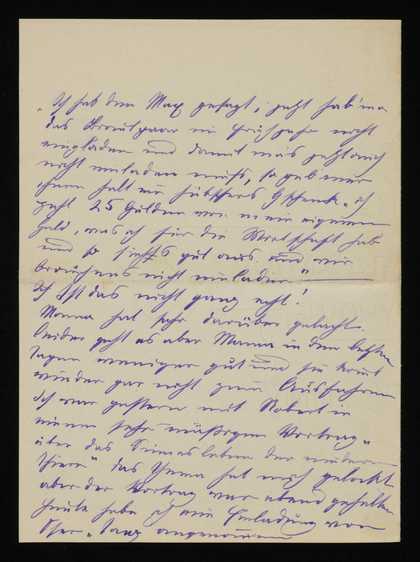 „Ich hab dem Max gesagt, jetzt hab'ma
das Brautpaar im Frühjahr nicht
eingeladen und damit ma's jetzt auch
nicht einladen muß, so geb' mer
ihnen halt ein hübscheres Gschenk. Ich
geb 25 Gulden von mein eigenen
Geld, was ich für die Wirtschaft hab
und so siehts gut aus und wir
brauchens nicht einladen."
Ist das nicht ganz echt?
Mama hat sehr darüber gelacht.
Leider geht es aber Mama in den letzten
Tagen weniger gut und sie kommt
wieder gar nicht zum Ausfahren.
Ich war gestern mit Robert in
einem sehr mäßigen Vortrag „
über das Sinnesleben der niedern
Thiere" das Thema hat mich gelockt
aber der Vortrag war elend gehalten
Heute habe ich eine Einladung von
angenommen